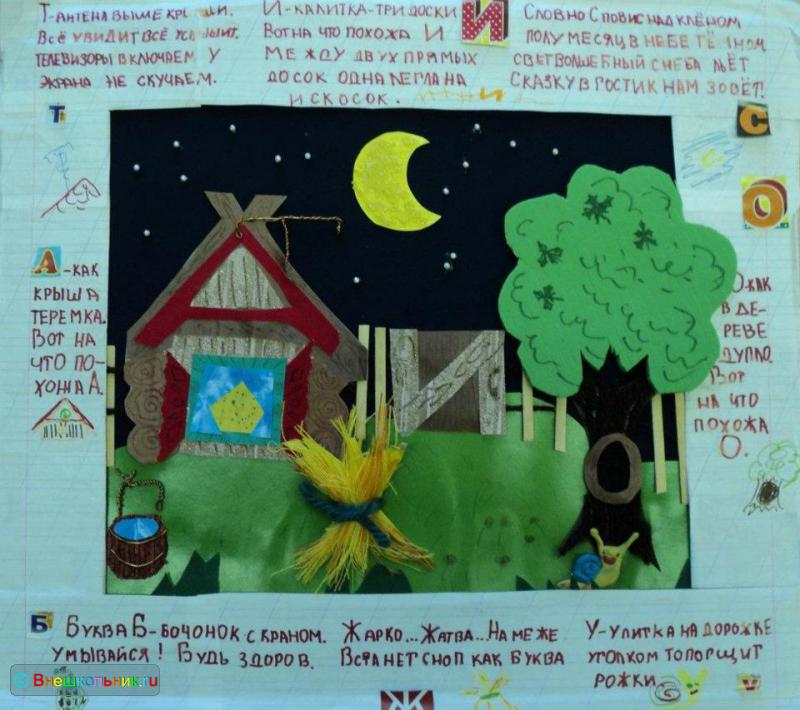 Т-АНТЕНА ВЫШЕ
ВСЁ УВИДИТ ВСЁ
ТЕЛЕВИЗОРЫ ВКЛЮЧАЕМ У
ЭКРАНА НЕ СКУЧАЕМ.
И-КАЛИТКА-ТРИ ДОСКИ
ВОТ НА ЧТО ПОХОЖА И
МЕЖДУ ДВУХ ПРЯМЫХ
ДОСОК ОДНА ЛЕГЛА НА
ИСКОСОК.
И
СЛОВНО С ПОВИС НАД КЛЁНОМ
ПОЛУМЕСЯЦ В НЕБЕ ТЁМНОМ
СВЕТ ВОЛШЕБНЫЙ С НЕБА ЛЬЁТ
СКАЗКУ В ГОСТИ К НАМ ЗОВЁТ!
Т
С
О
А-КАК
КРЫША
ТЕРЕМКА.
ВОТ НА
ЧТО ПО-
ХОЖА А.
О-КАК
В ДЕ-
РЕВЕ
ДУПЛО.
ВОТ
НА ЧТО
ПОХОЖА
О.
Б БУКВА Б-БОЧОНОК С КРАНОМ.
УМЫВАЙСЯ! БУДЬ ЗДОРОВ.
ЖАРКО...ЖАТВА...НА МЕЖЕ
ВСТАНЕТ СНОП КАК БУКВА
Ж
У-УЛИТКА НА ДОРОЖКЕ
УГОЛКОМ ТОПОРЩИТ
РОЖКИ.
У
© Внешкольник.ru